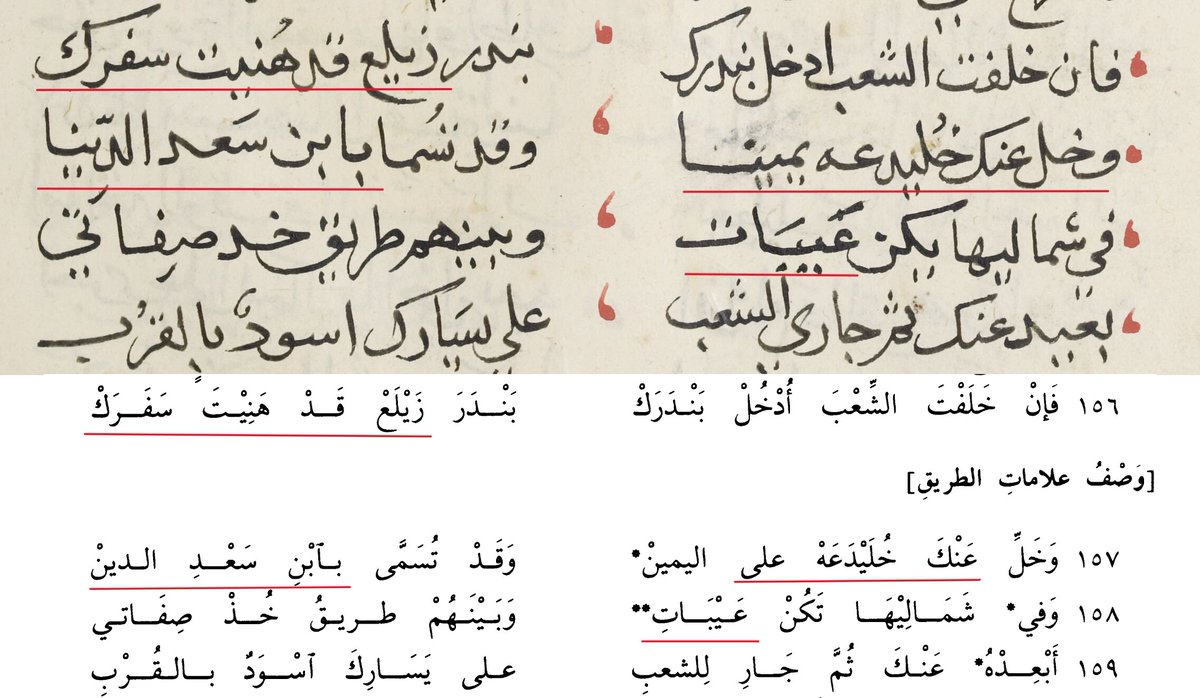 فان خلفت الشعب ادخل بندرك بندر زيلع قد هُنيت سفرك
وخل عنك خُليدعه يمينا وقد تسُما بابن سَعد الدّينا
في شماليها يكن عَيبَات وبينهم طريق خد صِفاتي
بعيد عنك ثم جاري الشعب علي يسَارك اسودٌ بالقرُب
١٥٦ فَإنْ خَلَفْتَ الشِّعْبَ أُدْخُلْ بَنْدَرَكْ بَنْـدَرَ زَيْلَعْ قَـدْ هَنِيْتَ سَفَـرَكْ
[وَصْفُ علاماتِ الطريقِ]
١٥٧ وَخَلِّ عَنْكَ خُلَيْدَعَهْ على اليمينْ* وَقَـدْ تُسَمَّى بِـٱبْنِ سَعْـدِ الـدينْ
١٥٨ وَفي* شَمَـالِيْهَـا تَكُنْ عَـيْبَـاتِ** وَبَيْنَـهُمْ طـريقُ خُـذْ صِفَـاتي
١٥٩ أَبْعِـدْهُ* عَنْـكَ ثُمَّ جَـارِ لِلشعبِ عـلى يَسَـارِكَ ٱسْـوَدٌ بـالـقُرْبِ